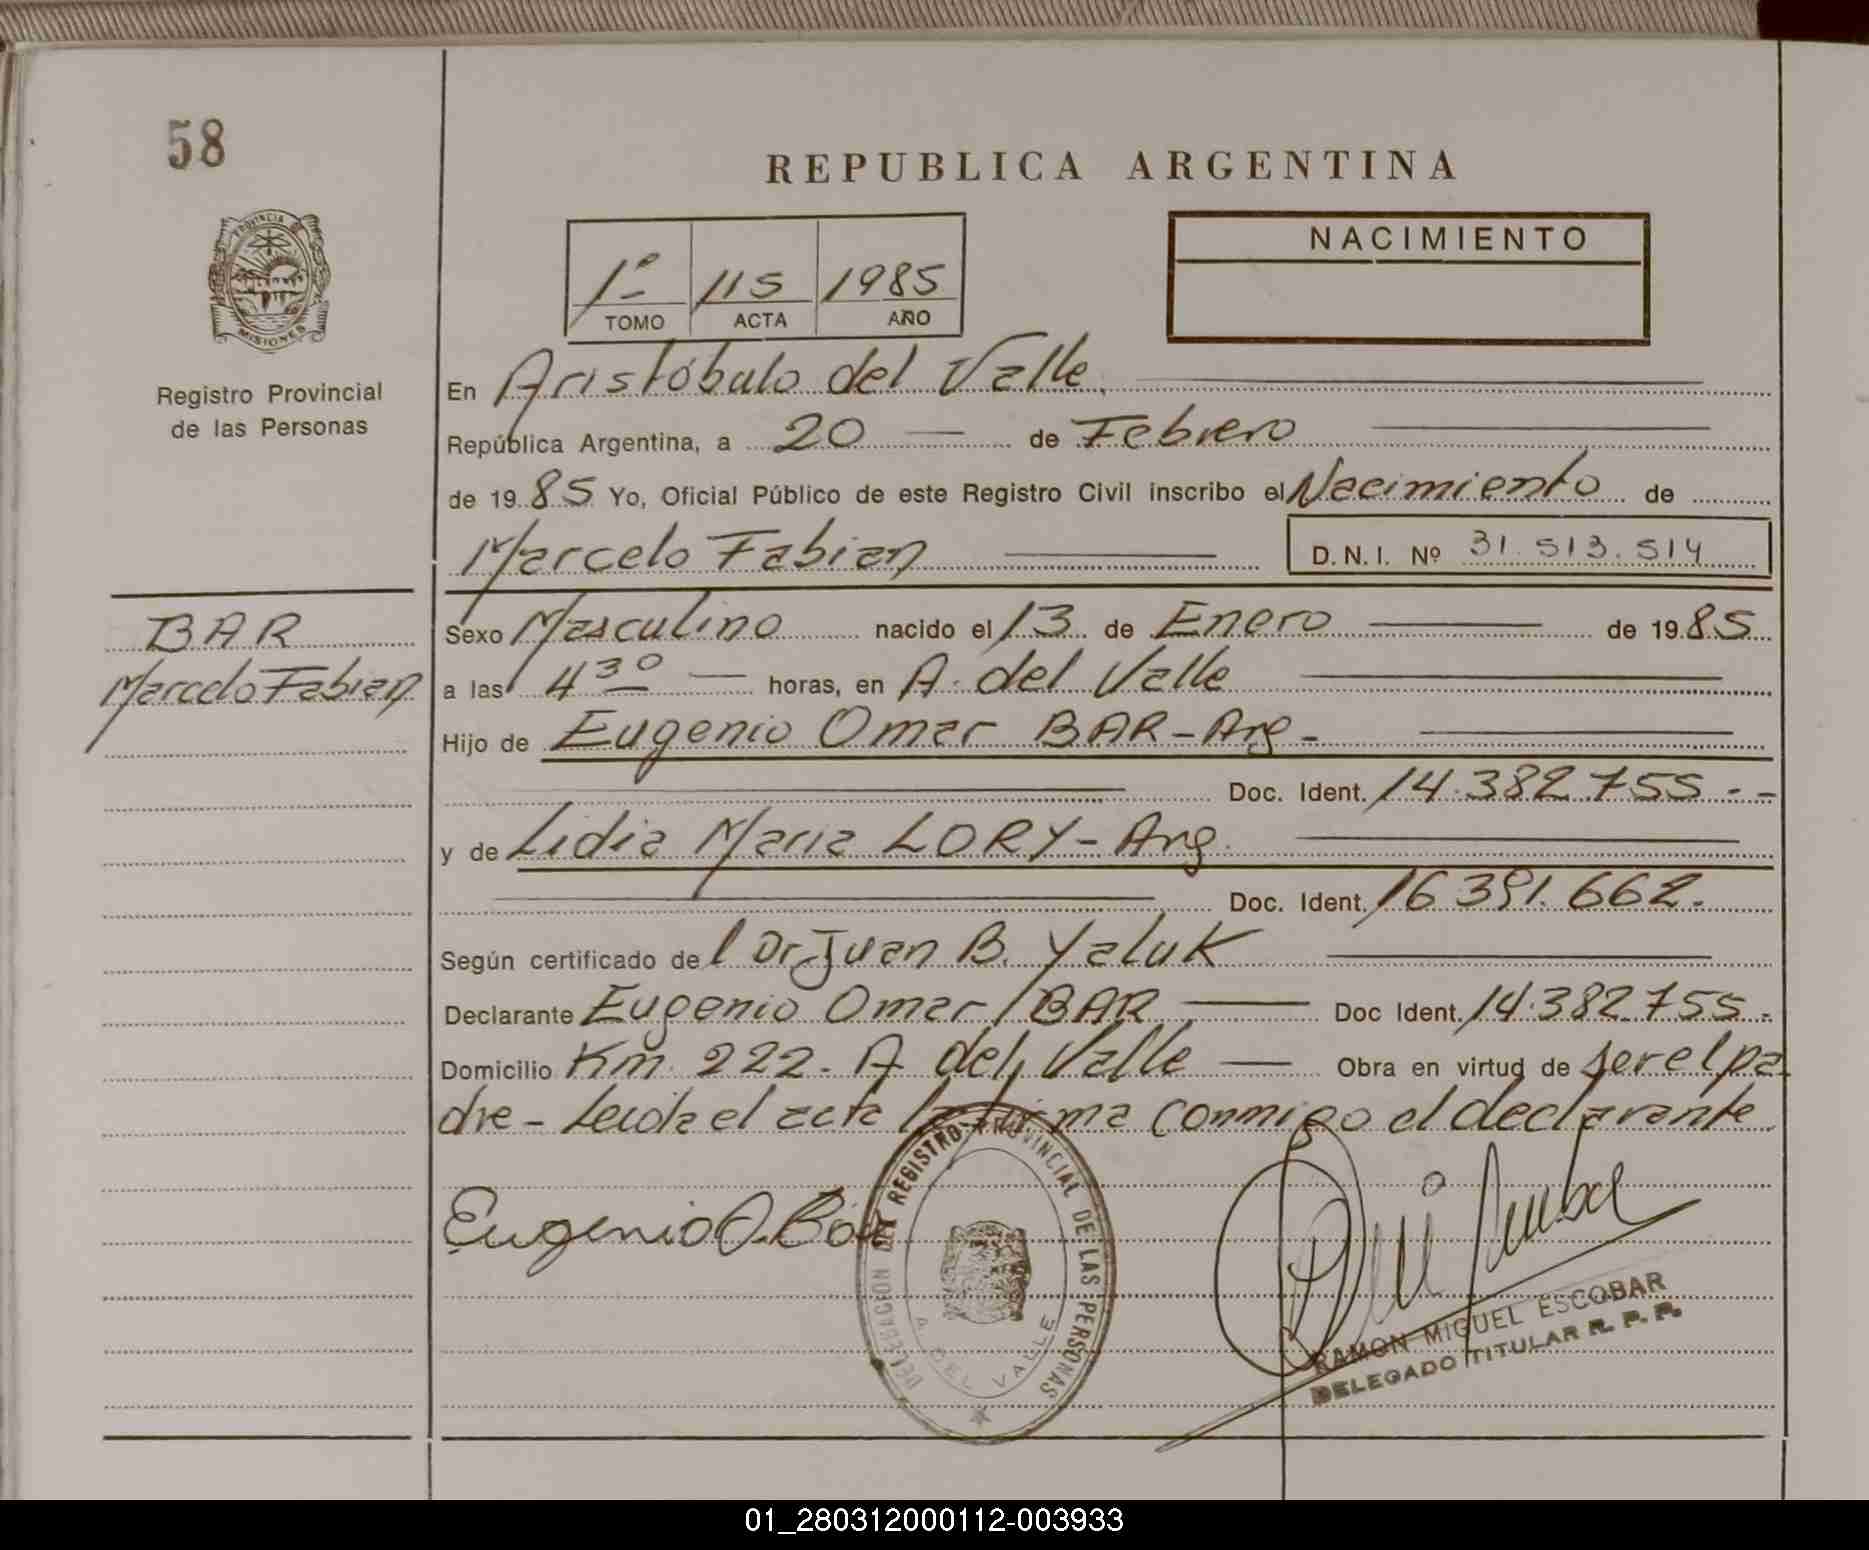 58
REPUBLICA ARGENTINA
PROVINCIA DE
MISIONES
Registro Provincial
de las Personas
1º 115 1985
TOMO ACTA AÑO
NACIMIENTO
En Aristóbulo del Valle
República Argentina, a 20 — de Febrero —
de 1985 Yo, Oficial Público de este Registro Civil inscribo el Nacimiento de
Marcelo Fabian — D.N.I. Nº 31.513.514
BAR
Marcelo Fabian
Sexo Masculino nacido el 13 de Enero — de 1985
a las 4 30 — horas, en A. del Valle —
Hijo de Eugenio Omar BAR - Arg - —
Doc. Ident. 14.382.755 - -
y de Lidia Maria LORY - Arg. —
Doc. Ident. 16.391.662.
Según certificado del Dr. Juan B. Yaluk —
Declarante Eugenio Omar BAR — Doc Ident. 14.382.755 -
Domicilio Km. 222 - A del Valle — Obra en virtud de ser el pa
dre - Leída el acta la firma conmigo el declarante
Eugenio O. Bar
DELEGACION DEL REGISTRO PROVINCIAL DE LAS PERSONAS
A. DEL VALLE
RAMON MIGUEL ESCOBAR
DELEGADO TITULAR R. P. P.
01_280312000112-003933